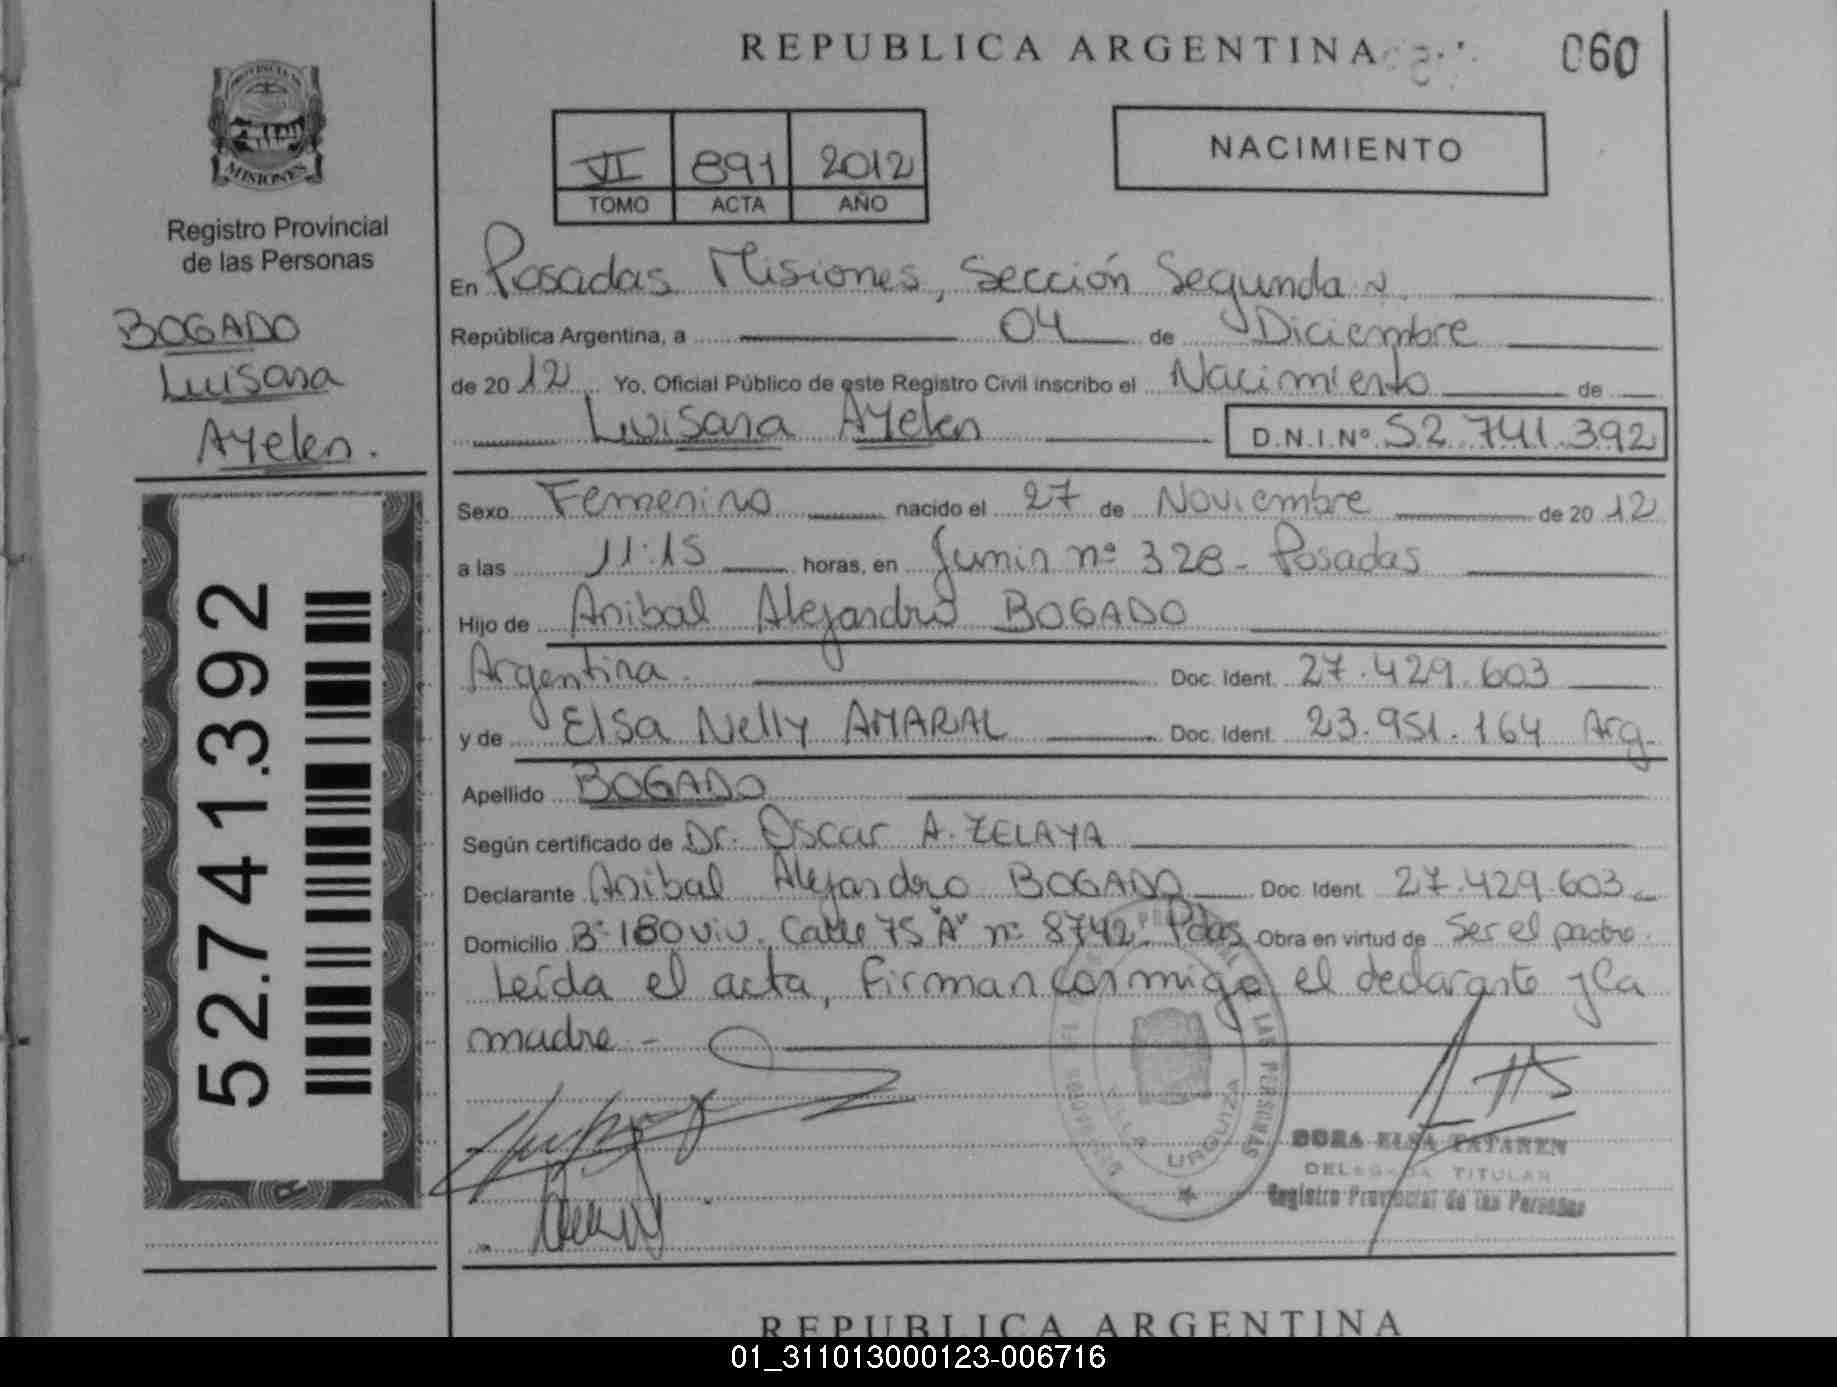 REPUBLICA ARGENTINA
060
PROVINCIA DE
MISIONES
Registro Provincial
de las Personas
BOGADO
Luisana
Ayelen.
52.741.392
VI 891 2012
TOMO ACTA AÑO
NACIMIENTO
En Posadas Misiones, Sección Segunda
República Argentina, a 04 de Diciembre
de 2012 Yo, Oficial Público de este Registro Civil inscribo el Nacimiento de
Luisana Ayelen D.N.I.Nº 52.741.392
Sexo Femenino nacido el 27 de Noviembre de 2012
a las 11:15 horas, en Junin nº 328 - Posadas
Hijo de Anibal Alejandro BOGADO
Argentina. Doc. Ident. 27.429.603
y de Elsa Nelly AMARAL Doc. Ident. 23.951.164 Arg.
Apellido BOGADO
Según certificado de Dr. Oscar A. ZELAYA
Declarante Anibal Alejandro BOGADO Doc. Ident. 27.429.603
Domicilio Bº 180 viv. Calle 75 "A" nº 8742. Pdas Obra en virtud de Ser el padre.
Leída el acta, firman conmigo el declarante y la
madre -
LAS PERSONAS
VILLA URQUIZA
DORA ELSA TATAREN
DELEGADA TITULAR
Registro Provincial de las Personas
REPUBLICA ARGENTINA
01_311013000123-006716